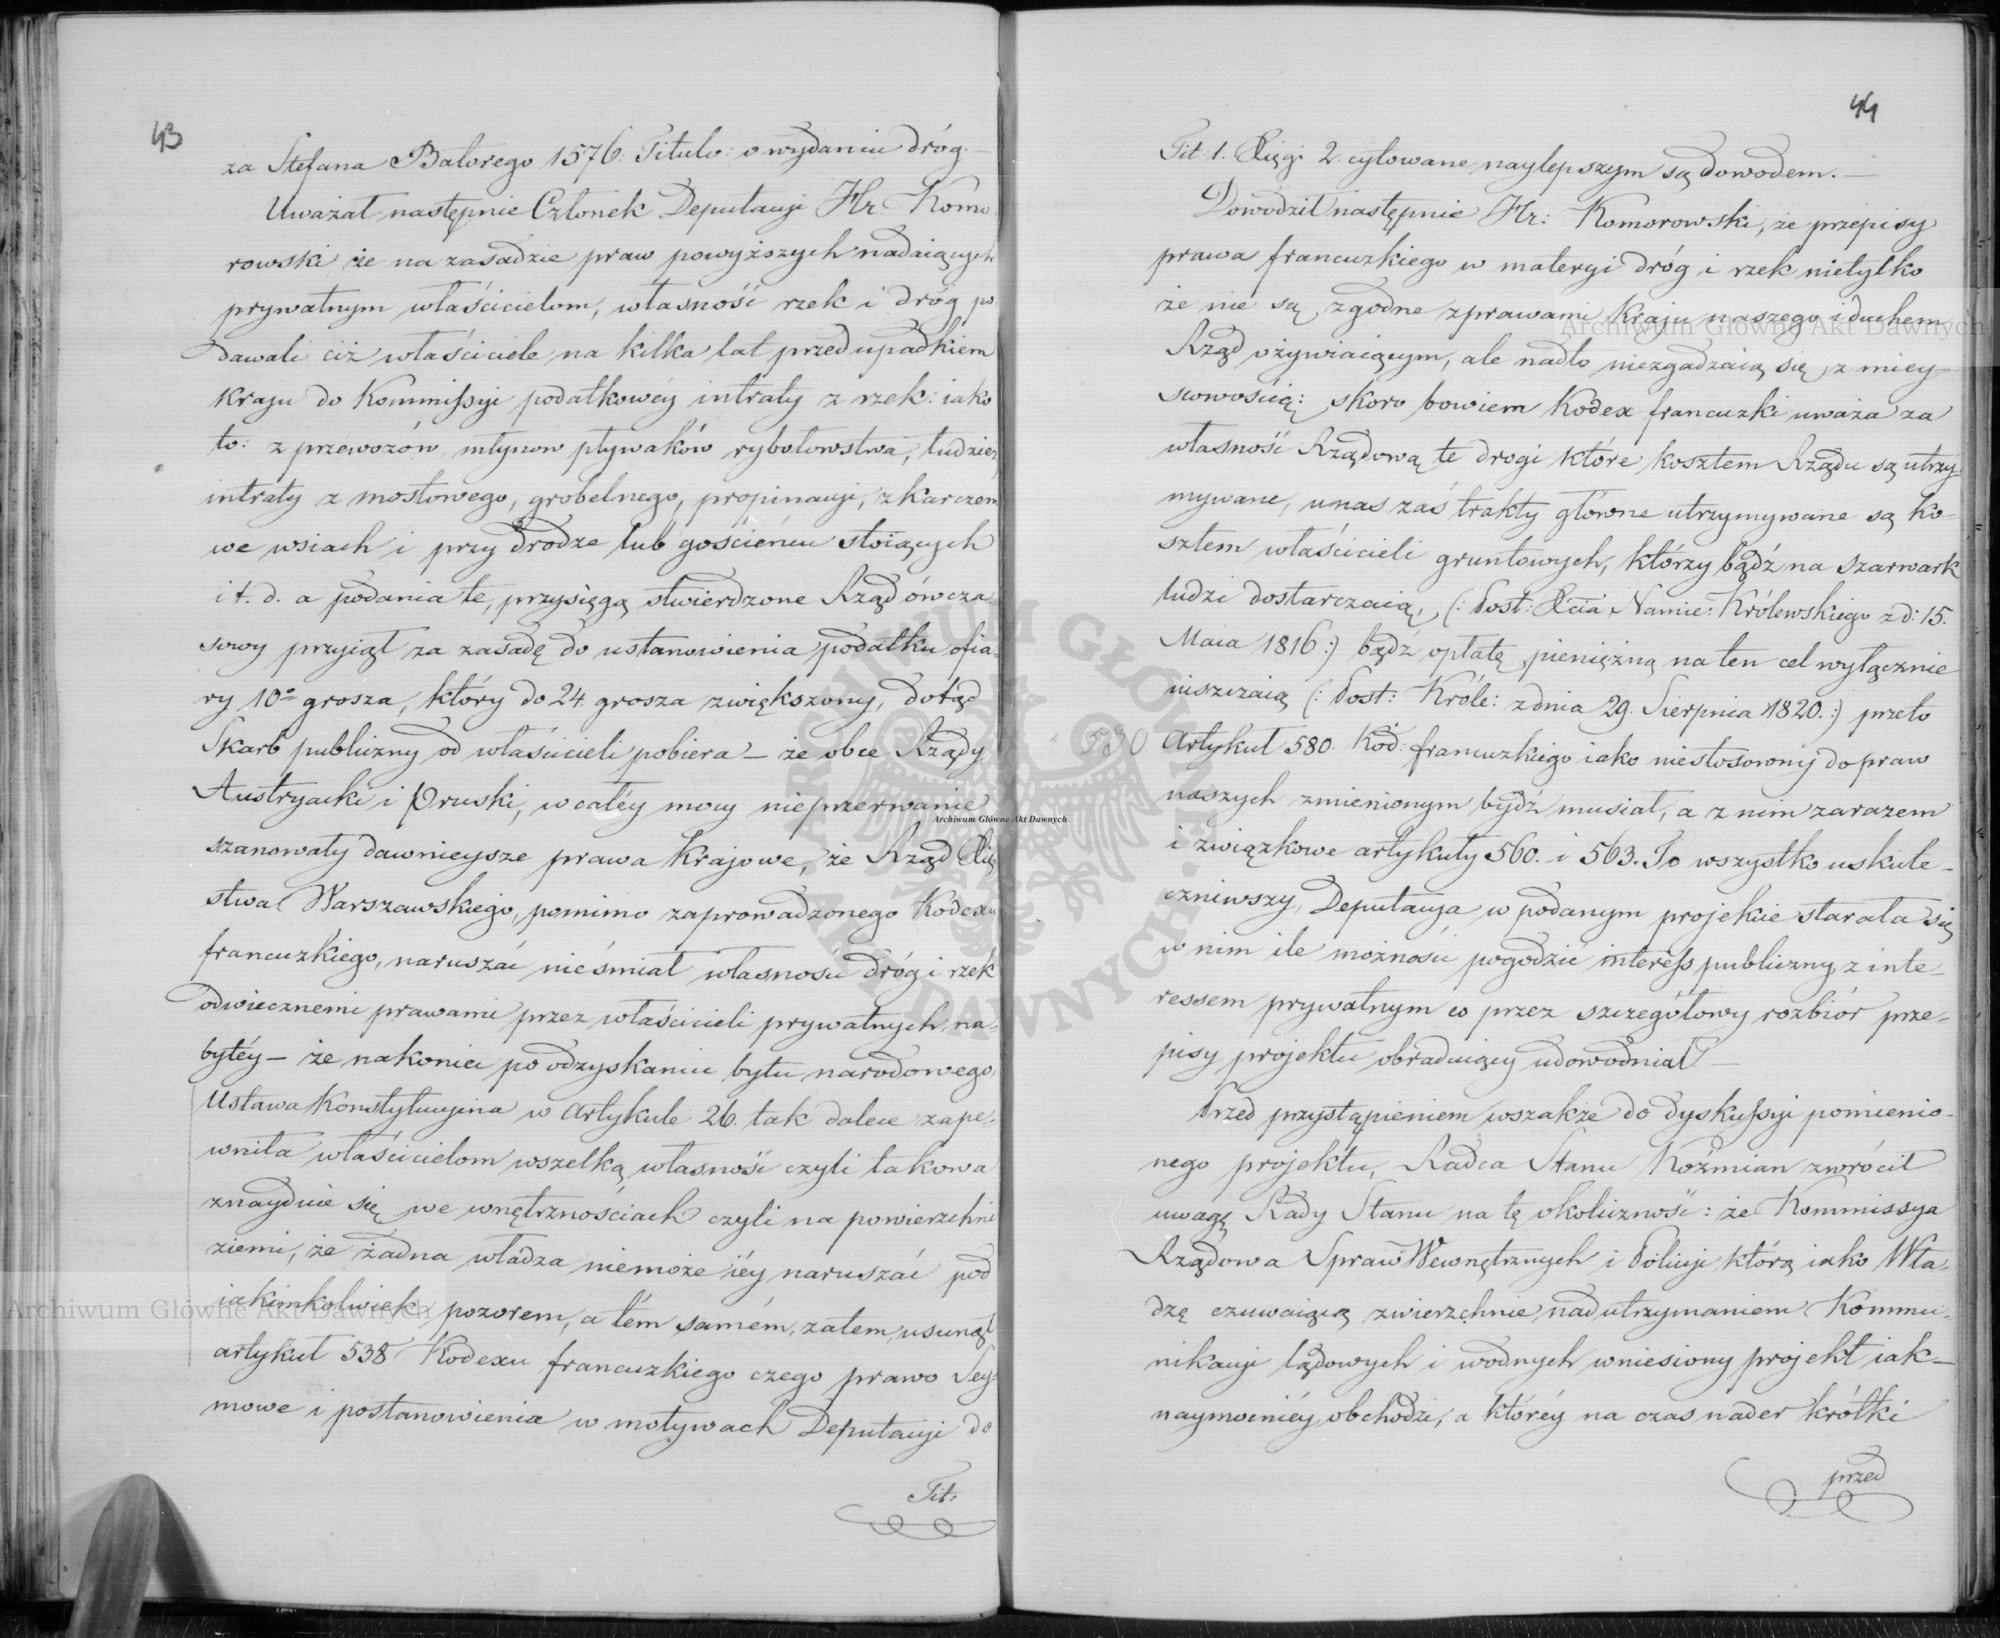 43
za Stefana Batorego 1576. Titulo: o wydaniu dróg.—
Uważał następnie Członek Deputacyi Hr. Komo-
rowski, że na zasadzie praw powyższych nadaiących
prywatnym właścicielom, własność rzek i dróg po-
dawali ciż właściciele na kilka lat przed upadkiem
kraju do Kommissyi podatkowéy intraty z rzek: iako
to: z przewozów, młynow pływaków rybołowstwa, tudzież
intraty z mostowego, grobelnego, propinacyi, z karczem
we wsiach i przy drodze lub gościéncu stoiących
i t. d. a podania te, przysięgą stwierdzone Rząd ówcza-
sowy przyiął za zasadę do ustanowienia podatku ofia-
ry 10º grosza, który do 24. grosza zwiększony, dotąd
Skarb publiczny od właścicieli pobiera — że obce Rządy
Austryacki i Pruski, w całéy mocy nieprzerwanie
szanowały dawnieysze prawa krajowe, że Rząd Xię-
stwa Warszawskiego, pomimo zaprowadzonego Kodexu
francuzkiego, naruszać nie śmiał własności dróg i rzek
odwiecznemi prawami przez właścicieli prywatnych na-
bytéy — że nakoniec po odzyskaniu bytu narodowego,
Ustawa Konstytucyina w Artykule 26. tak dalece zape-
wniła właścicielom wszelką własność czyli takowa
znayduie się we wnętrznościach czyli na powierzchni
ziemi, że żadna władza niemoże iéy naruszać pod
iakimkolwiek pozorem, a tém samém, zatem usunął
artykuł 538 Kodexu francuzkiego czego prawo Sey-
mowe i postanowienia w motywach Deputacyi do
Tit.
44
Tit. 1. Xięgi 2. cytowane naylepszym są dowodem.—
Dowodził następnie Hr: Komorowski, że przepisy
prawa francuzkiego w materyi dróg i rzek nietylko
że nie są zgodne z prawami Kraju naszego i duchem
Rząd ożywiaiącym, ale nadto niezgadzaią się z miey-
scowością: skoro bowiem Kodex francuzki uważa za
własność Rządową te drogi które kosztem Rządu są utrzy-
mywane, u nas zaś trakty główne utrzymywane są ko-
sztem właścicieli gruntowych, którzy bądź na szarwark
ludzi dostarczaią, (: Post: Xcia Namie: Królewskiego z d: 15.
Maia 1816 :) bądź opłatę pieniężną na ten cel wyłącznie
uiszczaią (: Post: Króle: z dnia 29. Sierpnia 1820. :) przeto
580 Artykuł 580. Kod: francuzkiego iako niestosowny do praw
naszych zmienionym bydź musiał, a z nim zarazem
i związkowe artykuły 560. i 563. To wszystko uskute-
czniwszy, Deputacya w podanym projekcie starała się
w nim ile możności pogodzić interess publiczny z inte-
ressem prywatnym co przez szczegółowy rozbiór prze-
pisy projektu obraduiący udowodniał.—
Przed przystąpieniem wszakże do dyskussyi pomienio-
nego projektu, Radca Stanu Koźmian zwrócił
uwagę Rady Stanu na tę okoliczność: że Kommissya
Rządowa Spraw Wewnętrznych i Policyi którą iako Wła-
dzę czuwaiącą zwierzchnie nad utrzymaniem Kommu-
nikacyi lądowych i wodnych wniesiony projekt iak-
naymocniéy obchodzi, a któréy na czas nader krótki
przed
Archiwum Główne Akt Dawnych
Archiwum Główne Akt Dawnych
Archiwum Główne Akt Dawnych
ARCHIWUM GŁÓWNE AKT DAWNYCH